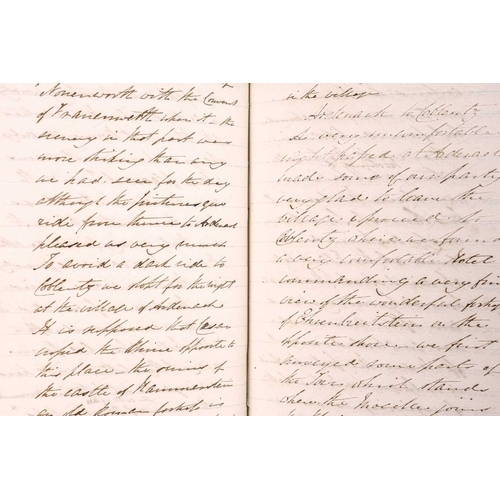 Nonenworth with the Convent
of Franenworth upon it – the
scenery in that part was
more striking than any
we had seen for the day
although the picturesque
ride from thence to Andernach
pleased us very much
To avoid a dark ride to
Coblentz we slept for the night
at the village of Andernach
It is supposed that Caesar
crossed the Rhine opposite to
this place – the ruins of
the castle of Hammerstein
an old Roman
in the village
Andernach to Coblentz
a very uncomfortable
night passed at Andernach
made some of our party
very glad to leave the
village & proceed to
Coblentz where we found
a very comfortable Hotel
commanding a very fine
view of the wonderful
of Ehrenbreitstein on the
opposite shore – we first
surveyed some parts of
the which stands
where the Moselle joins